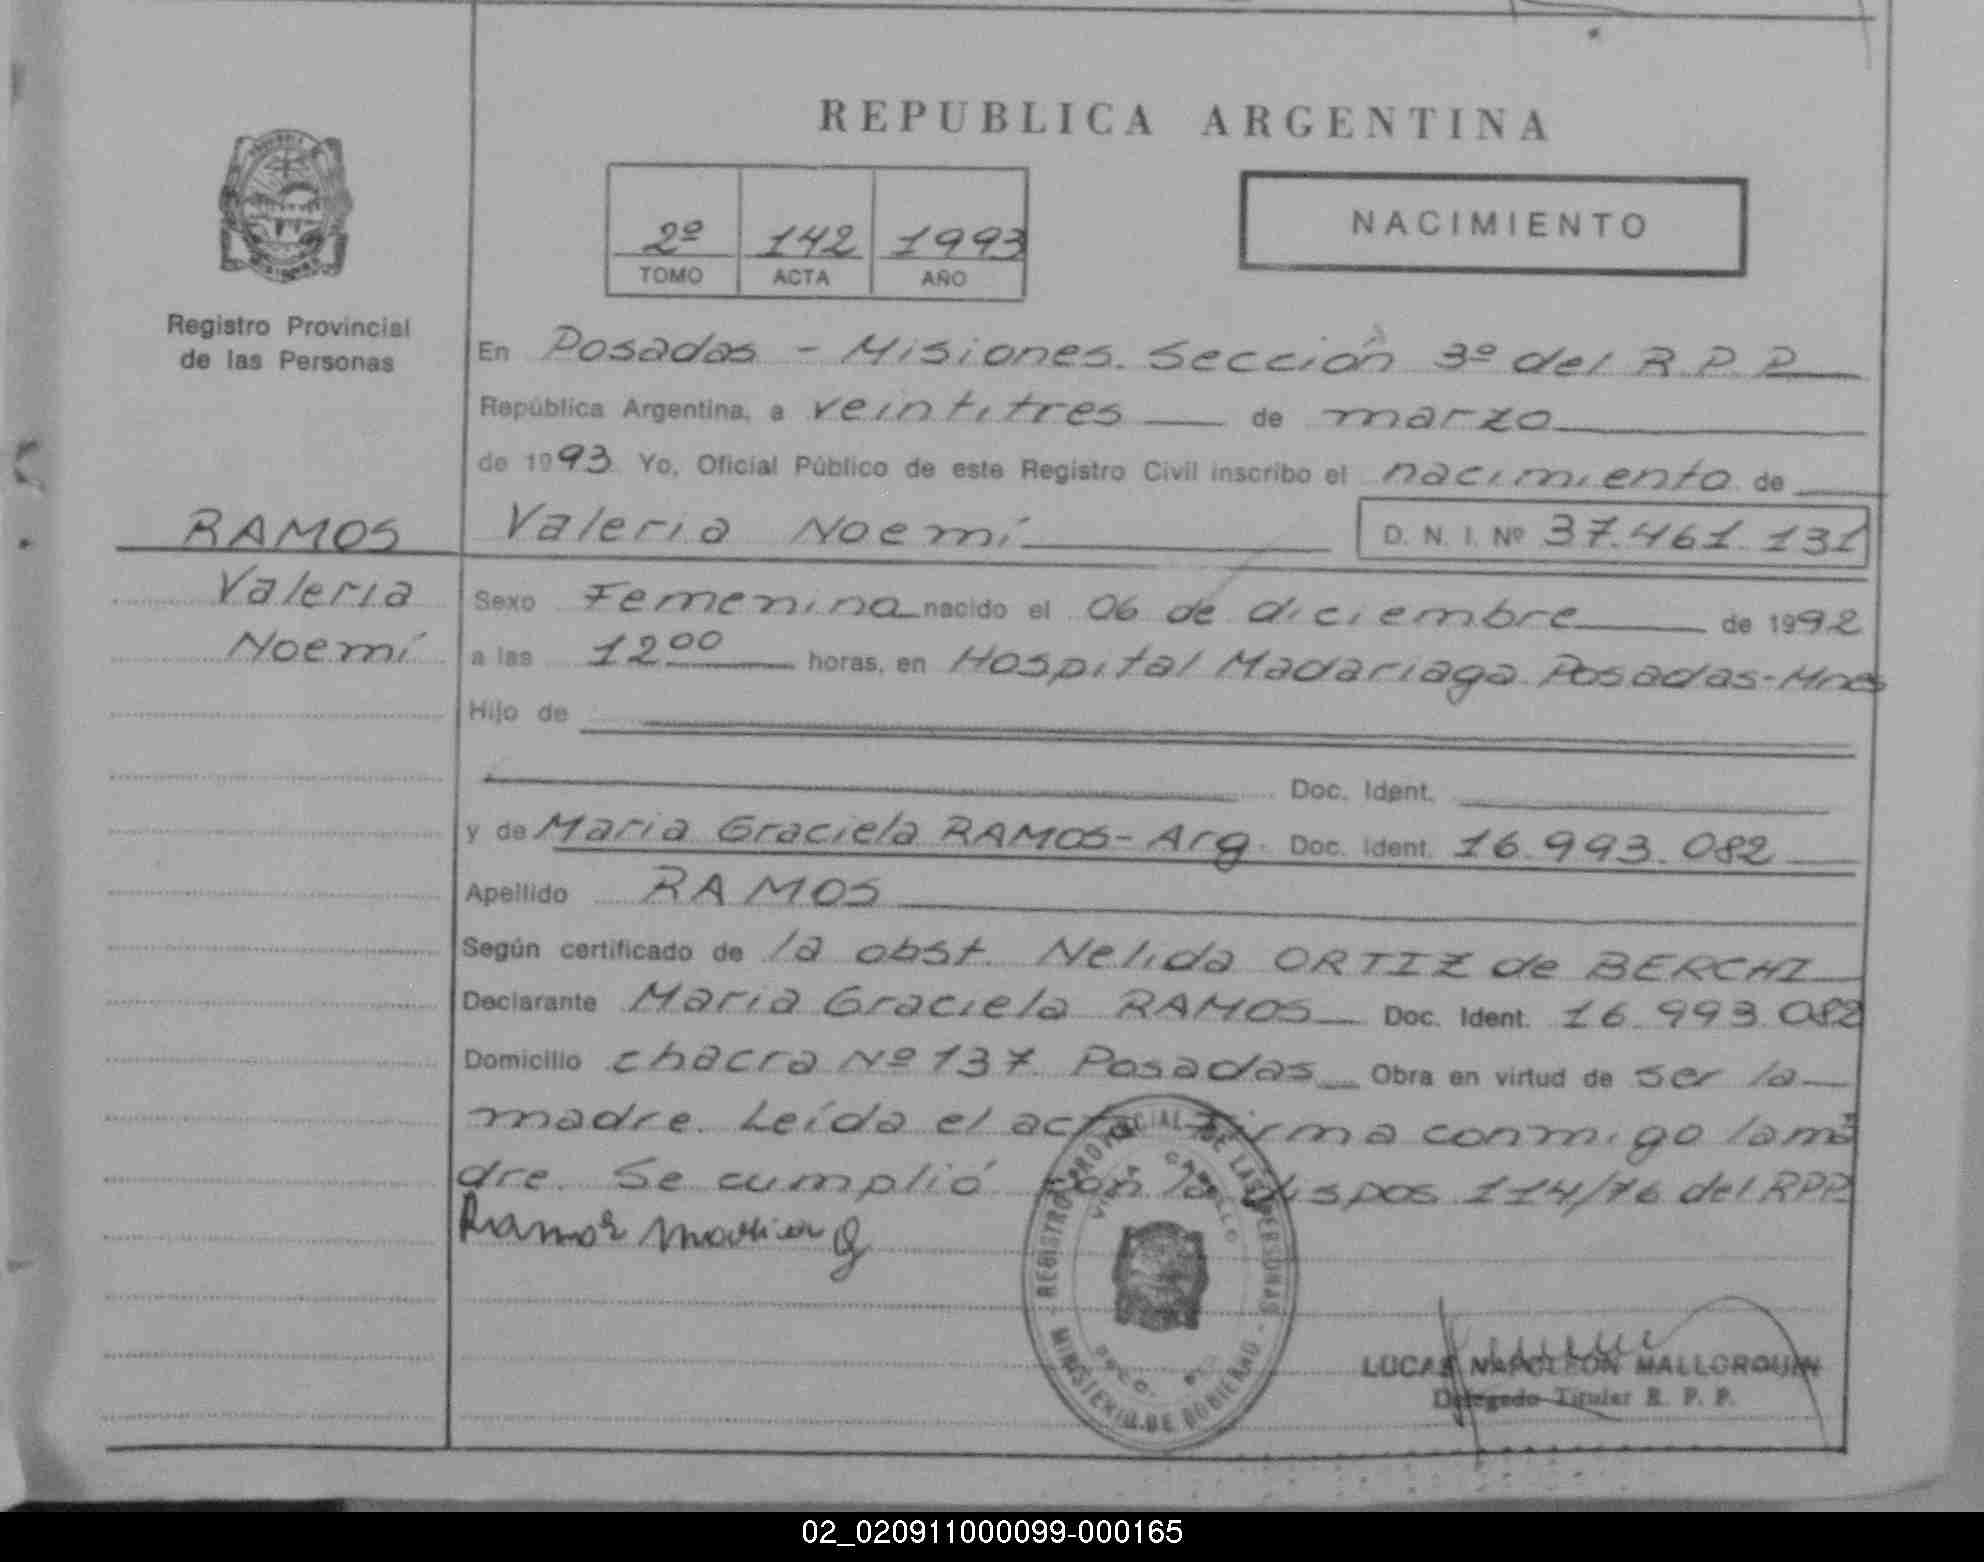 REPUBLICA ARGENTINA
2º 142 1993
TOMO ACTA AÑO
NACIMIENTO
Registro Provincial
de las Personas
En Posadas - Misiones. Sección 3º del R.P.P.
República Argentina, a veintitres de marzo
de 1993 Yo, Oficial Público de este Registro Civil inscribo el nacimiento de
RAMOS Valeria Noemí D. N. I. Nº 37.461.131
Valeria
Noemí
Sexo Femenina nacido el 06 de diciembre de 1992
a las 12 00 horas, en Hospital Madariaga. Posadas-Mnes
Hijo de
Doc. Ident.
y de Maria Graciela RAMOS- Arg. Doc. Ident. 16.993.082
Apellido RAMOS
Según certificado de la obst. Nelida ORTIZ de BERCHI
Declarante Maria Graciela RAMOS Doc. Ident. 16.993.082
Domicilio chacra Nº 137 Posadas Obra en virtud de ser la
madre. Leída el acta firma conmigo la ma
dre. Se cumplió con la Dispos 114/76 del RPP.
Ramos Maria G
REGISTRO PROVINCIAL DE LAS PERSONAS
MINISTERIO DE GOBIERNO
VILLA CABELLO
LUCAS NAPOLEON MALLORQUIN
Delegado Titular R. P. P.
02_020911000099-000165